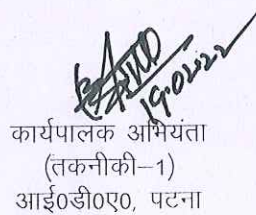 19.02.22
कार्यपालक अभियंता
(तकनीकी–1)
आई0डी0ए0, पटना